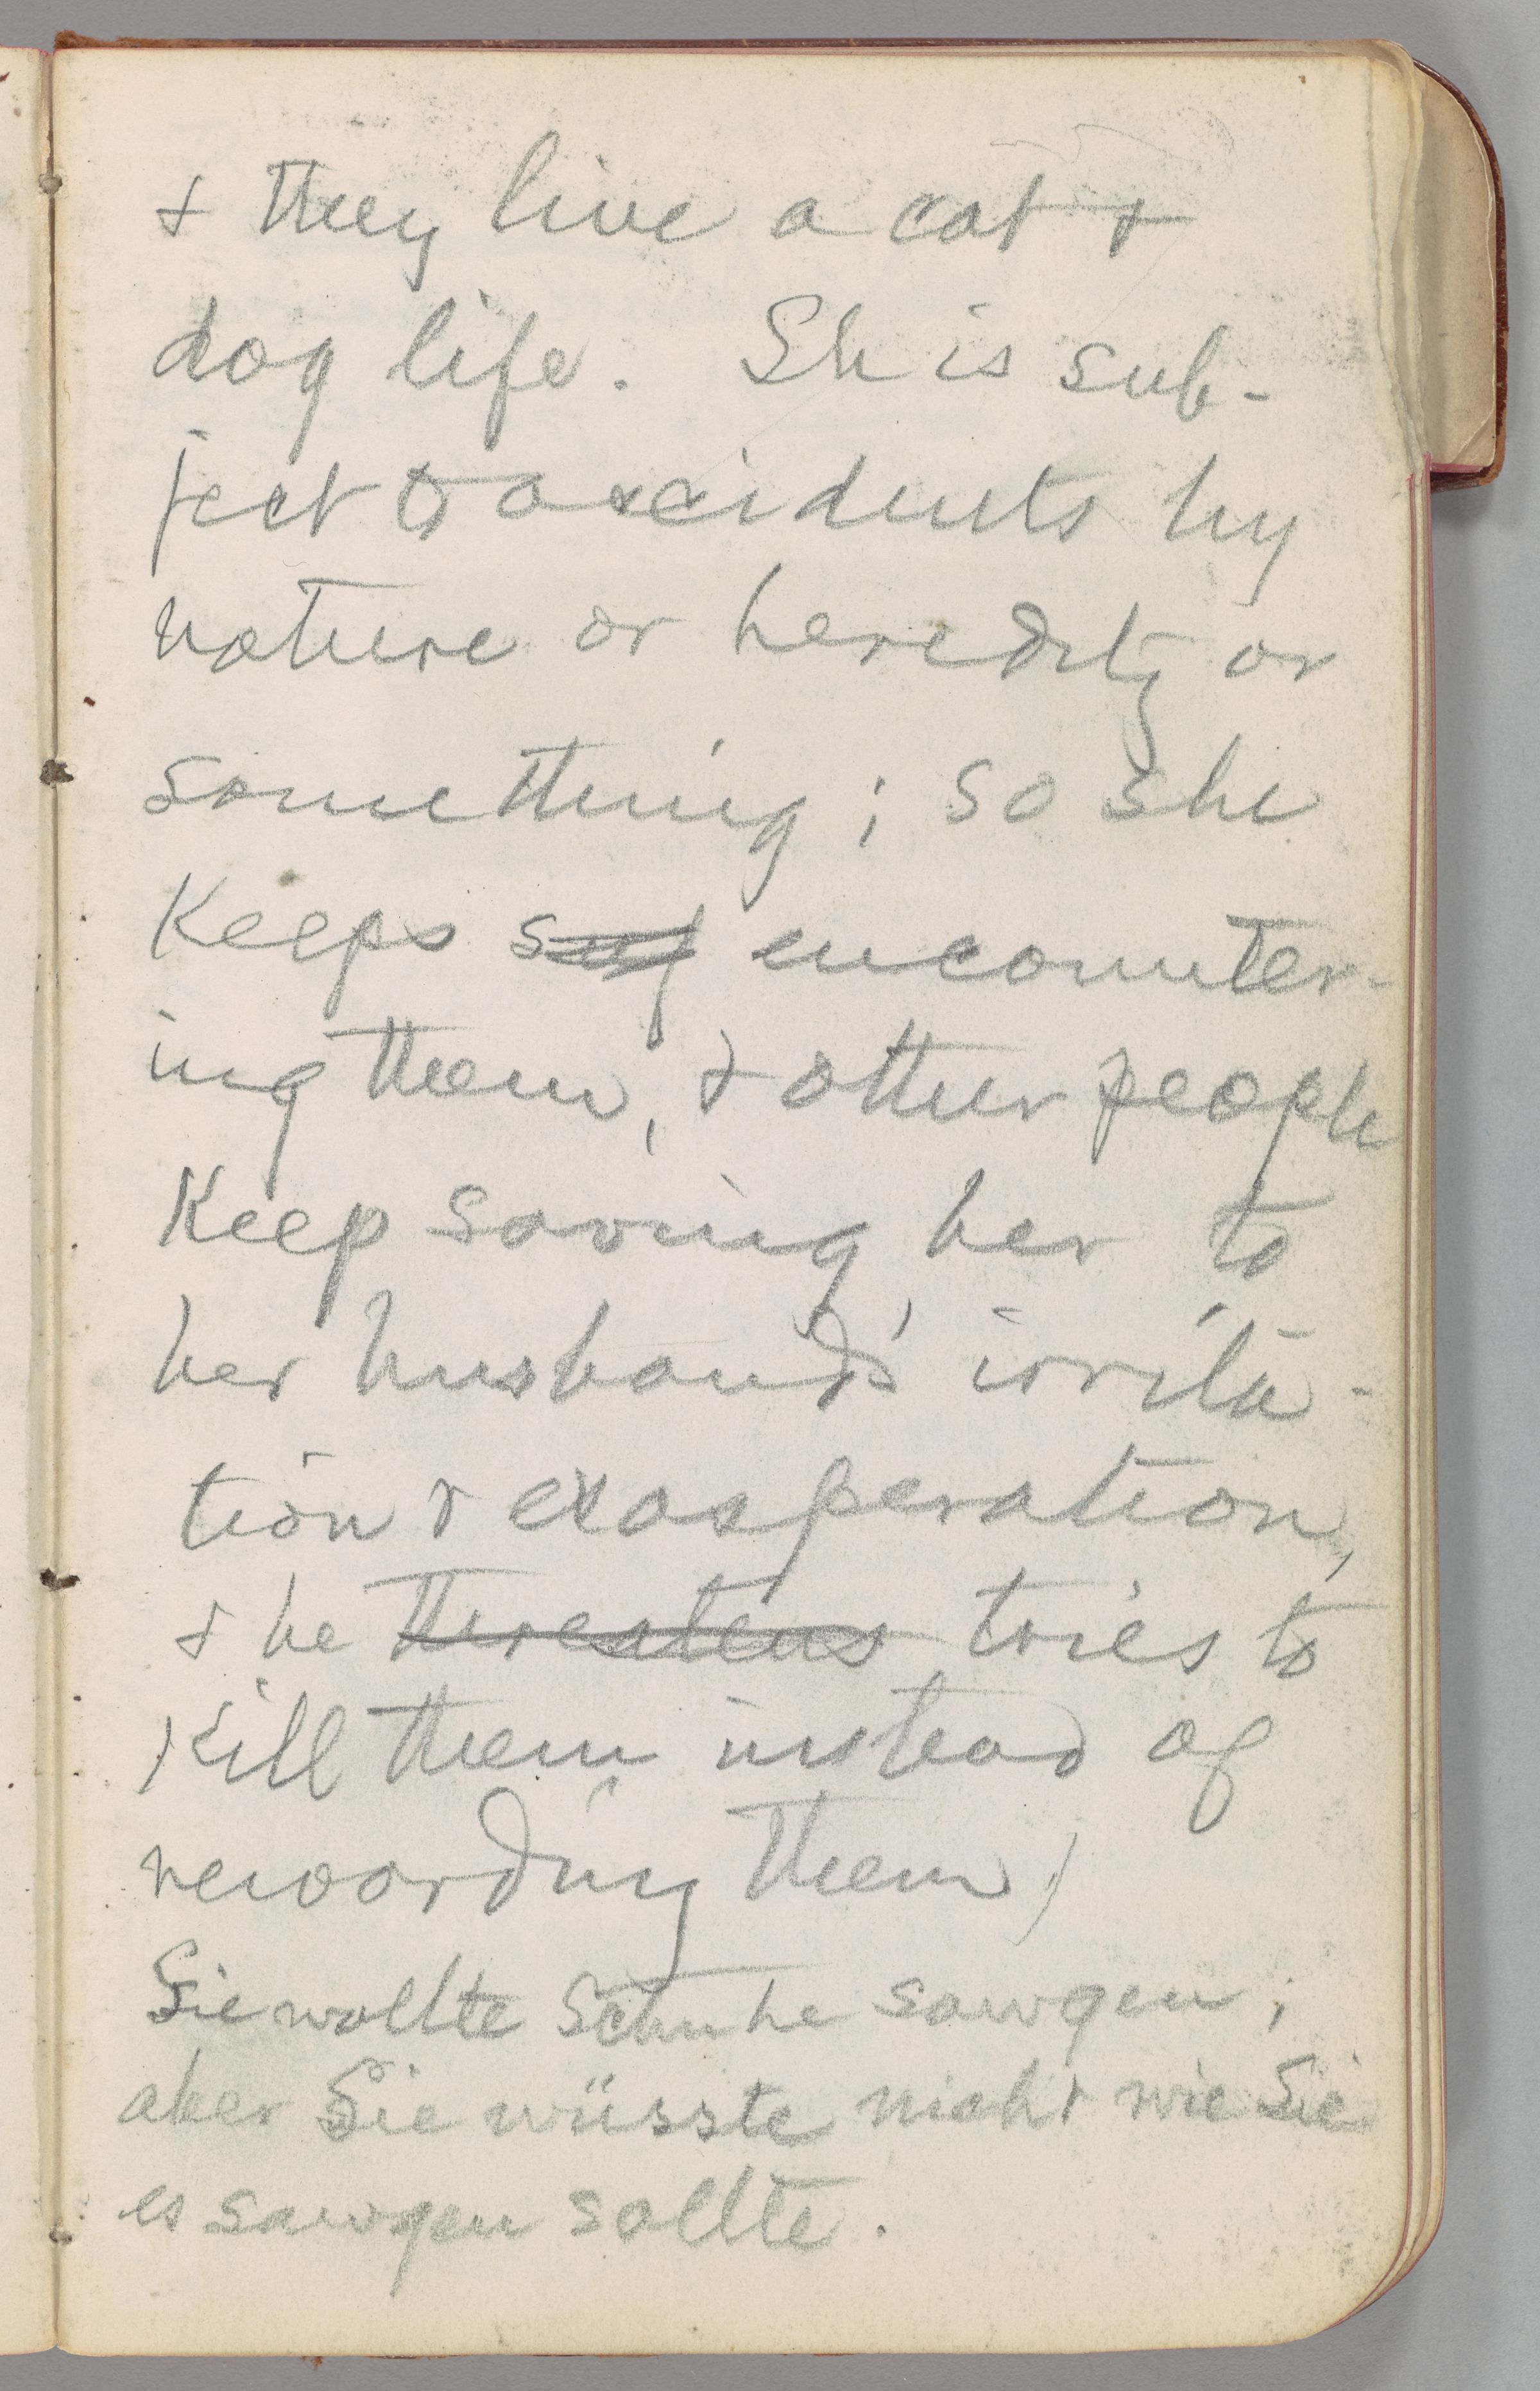 & they live a cat &
dog life. Sh is sub-
ject to accidents by
nature or heredity or
something; so she
keeps suf encounter-
ing them, & other people
keep saving her to
her husband's irrita-
tion & exasperation,
& he threatens tries to
kill them instead of
rewarding them)
Sie wollte Schuhe sawgen;
aber Sie wüsste nicht wie Sie
es sawgen sollte.